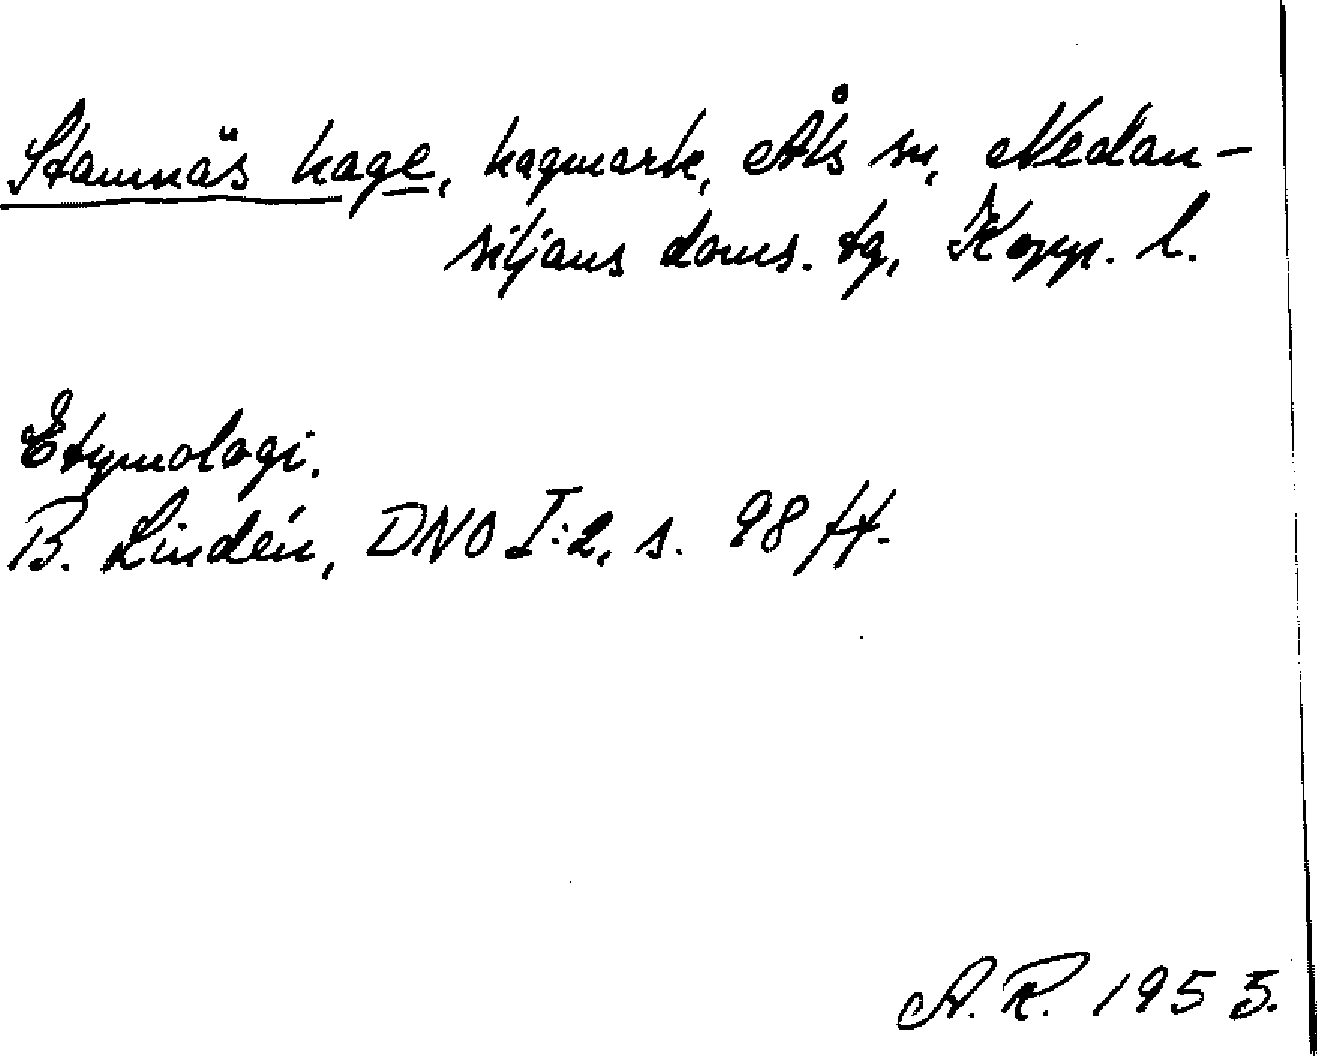 Stamnäs hage, hagmark, Åls sn, Nedan-
siljans doms. tg, Kopp. l.
Etymologi.
B. Lindén, DNO I:2, s. 98 ff.
A. R. 1955.